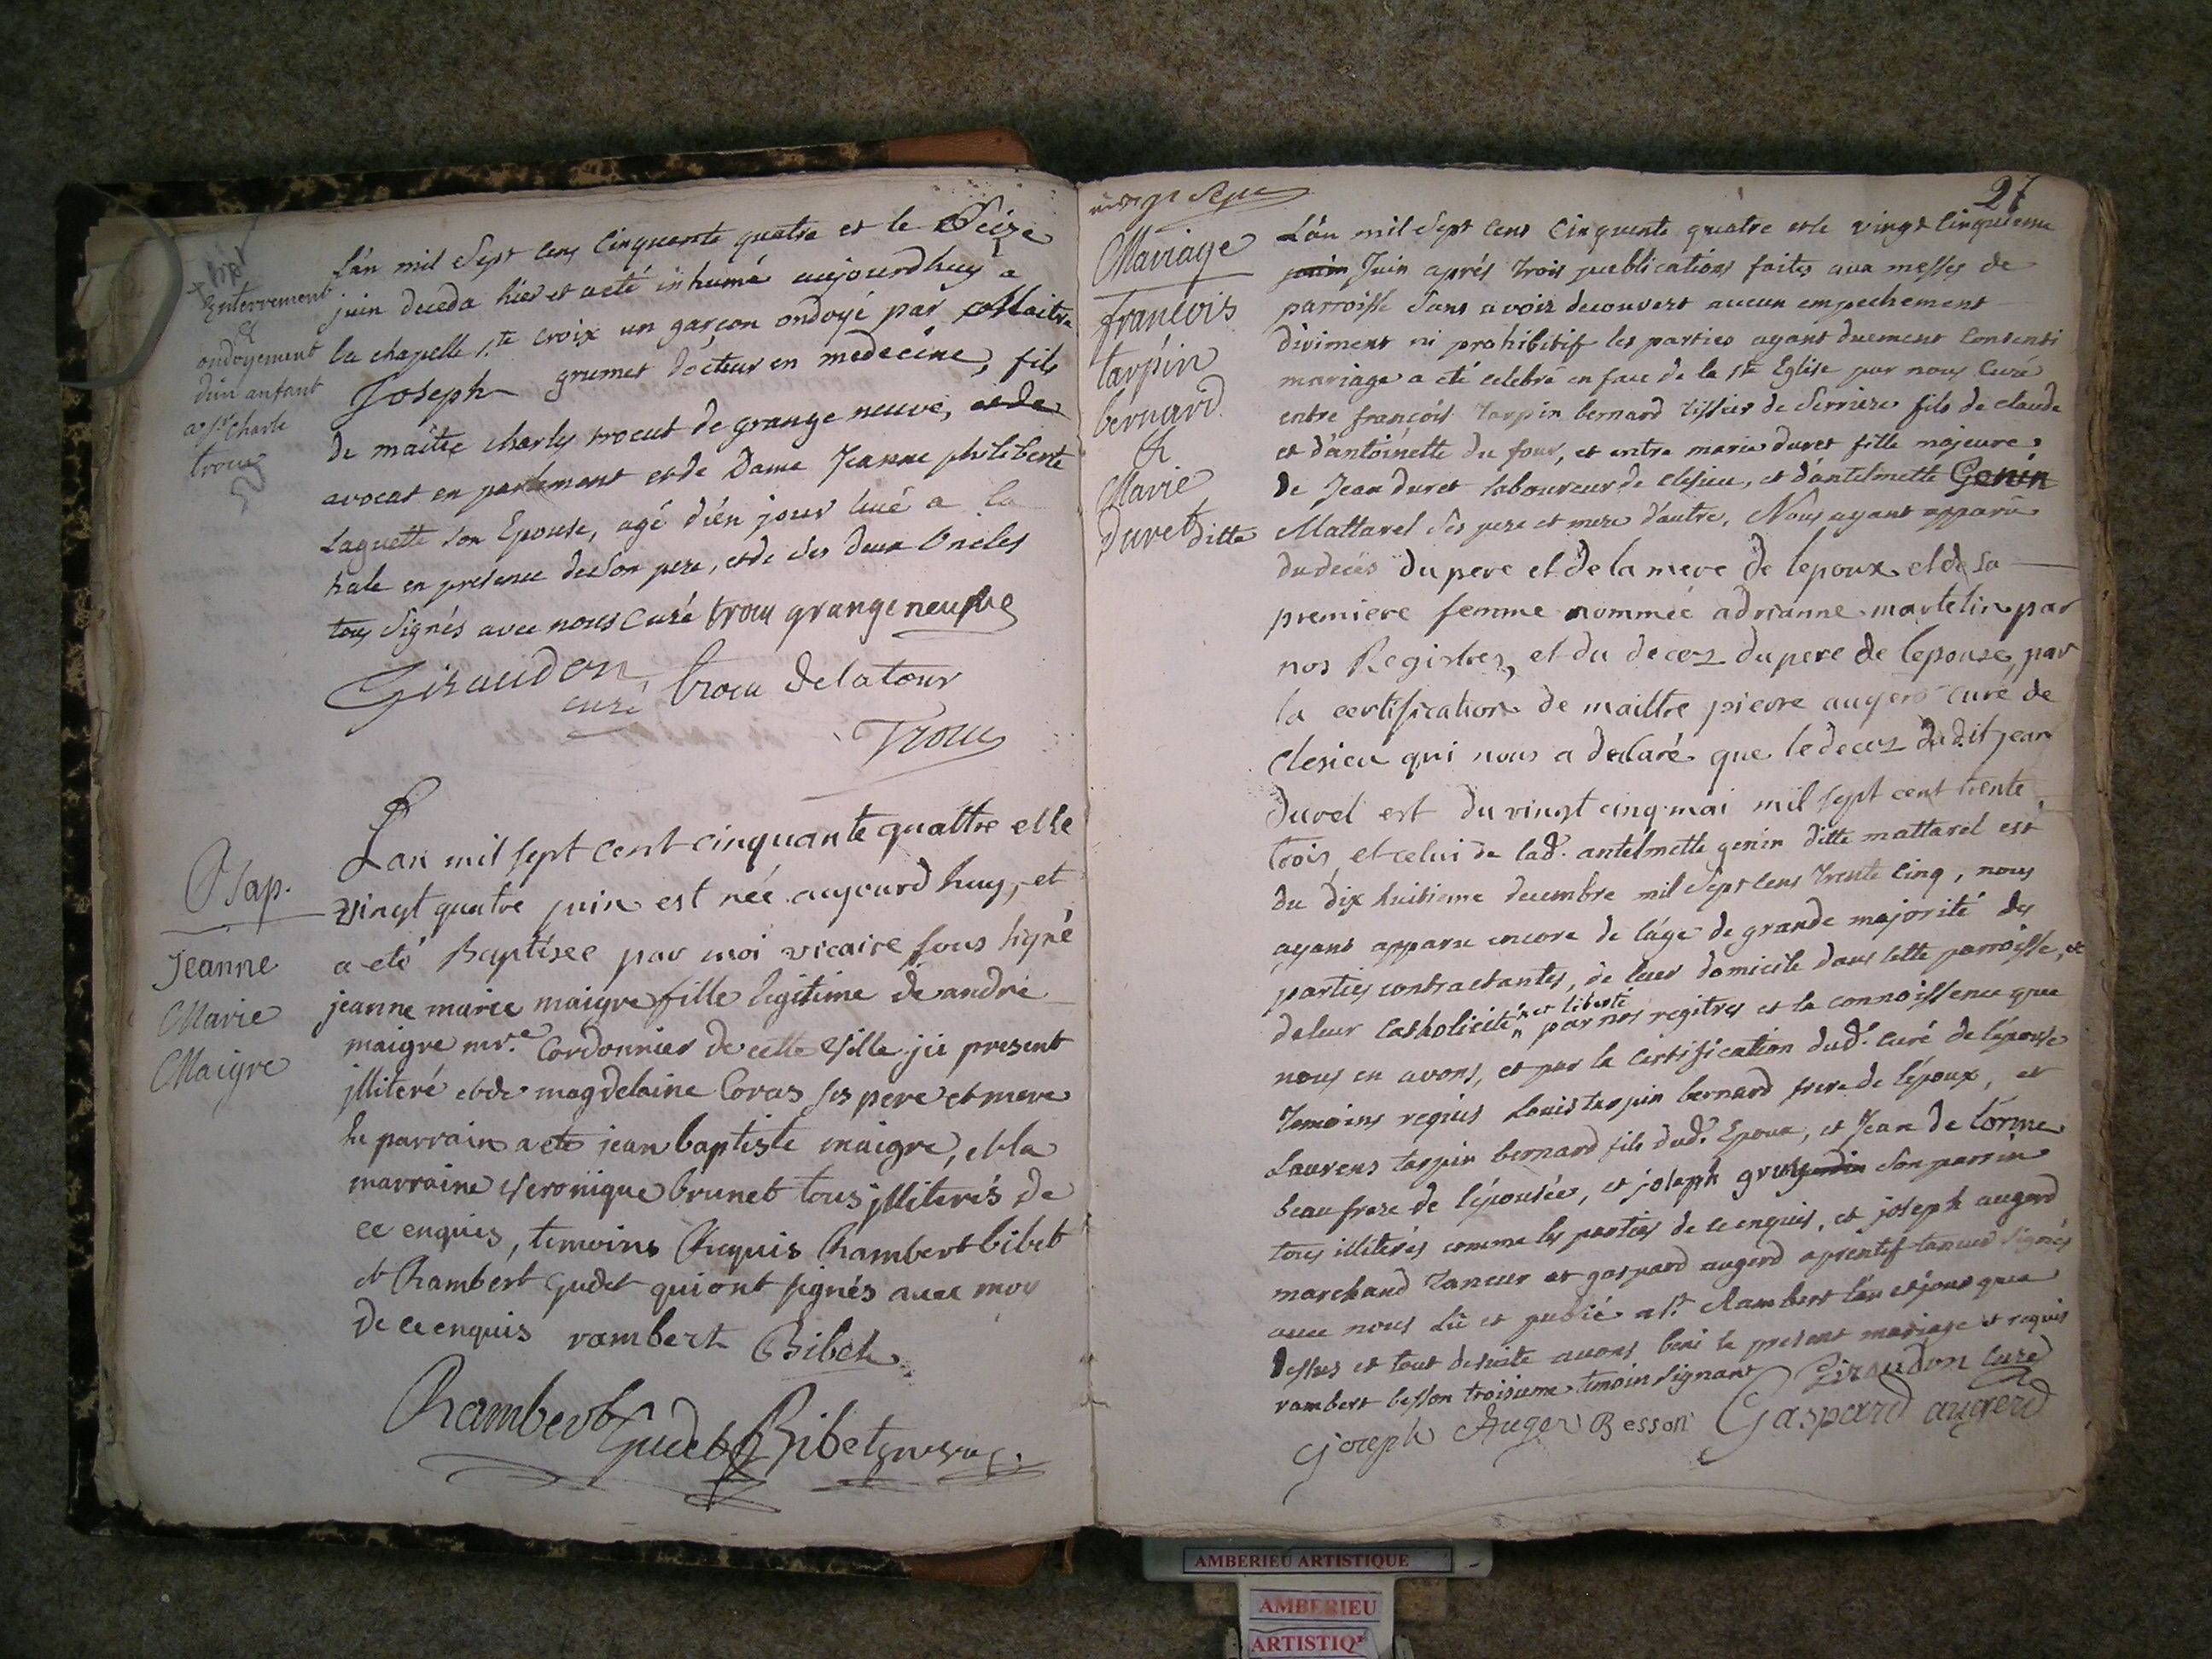 Enterrement
&
ondoyement
d'un anfant
a Sr Charle
trocu
L'an mil Sept cens Cinquante quatre et le Seize
juin deceda hier et a eté inhumé aujourdhuy a
la chapelle Ste Croix un garçon ondoyé par Maitre
Joseph grumet docteur en medecine, fils
de maitre charles trocut de grange neuve, et de
avocat en parlement et de Dame Jeanne philiberte
Laguette son Epouse, agé d'en jour lui a la
hale en presence de son pere, et de ses deux Oncles
tous signés avec nous Curé trocu grangeneufve
Giraudon
curé trocu Delatour
Trocu
Bap.
Jeanne
Marie
Maigre
Lan mil sept cent cinquante quattre et le
vingt quatre juin est née aujourdhuy, et
a eté Baptisée par moi vicaire sous signé
jeanne marie maigre fille legitime de andré
maigre mre Cordonnier de cette ville jci present
jlliteré et de magdelaine Coras ses pere et mere
Le parrain a eté jean baptiste maigre, et la
marraine Veronique brunet tous jlliterés de
ce enquis, temoins Requis Rambert bibet
et Rambert Gudet qui ont signés avec moy
De ce enquis rambert Bibet
Rambert Gudet Bibet
vingt sept
27
Mariage
francois
tarpin
bernard
&
Marie
Duret ditte
L'an mil Sept cens Cinquente quatre et le vingt cinquieme
juin Juin aprés trois publications faites aux messes de
parroisse sans avoir decouvert aucun empechement
diriment ni prohibitif les parties ayant duement Consenti
mariage a eté celebré en face de la Ste Eglise par nous Curé
entre françois tarpin bernard tissier de Serriere fils de claude
et d'antoinette du four, et entre marie duret fille majeure
de Jean duret laboureur de clesieu, et d'antelmette Genin
Mattarel ses pere et mere d'autre, Nous ayant apparu
du deces du pere et de la mere de lepoux et de sa
premiere femme nommée adrianne martelin par
nos Registres, et du deces du pere de lepouse par
la certification de maittre pierre augerd curé de
Clesieu qui nous a declaré que le deces du dit jean
duret est du vingt cinq mai mil sept cent trente
trois, et celui de lad. antelmette genin ditte mattarel est
du dix huitieme decembre mil Sept cens trente cinq, nous
ayant apparu encore de l'age de grande majorité des
parties contractantes, de leur domicile dans cette parroisse, et
de leur Catholicité et liberté par nos regitres et la connoissence que
nous en avons, et par la Certification dud. curé de l'épouse
temoins requis Louis tarpin bernard frere de l'époux, et
Laurens tarpin bernard fils dud. Epoux, et Jean de lorme
beaufrere de l'épousée, et joseph son parrin
tous illiterés comme les parties de ce enquis, et joseph augerd
marchand tanneur et gaspard augerd aprentif tanneur signés
avec nous Lu et publié a St Rambert l'an et jour que
dessus et tout desuite avons beni le present mariage et requis
rambert besson troisieme temoin signant Giraudon curé
joseph Auger Besson Gaspard augerd
AMBERIEU ARTISTIQUE
AMBERIEU
ARTISTIQ